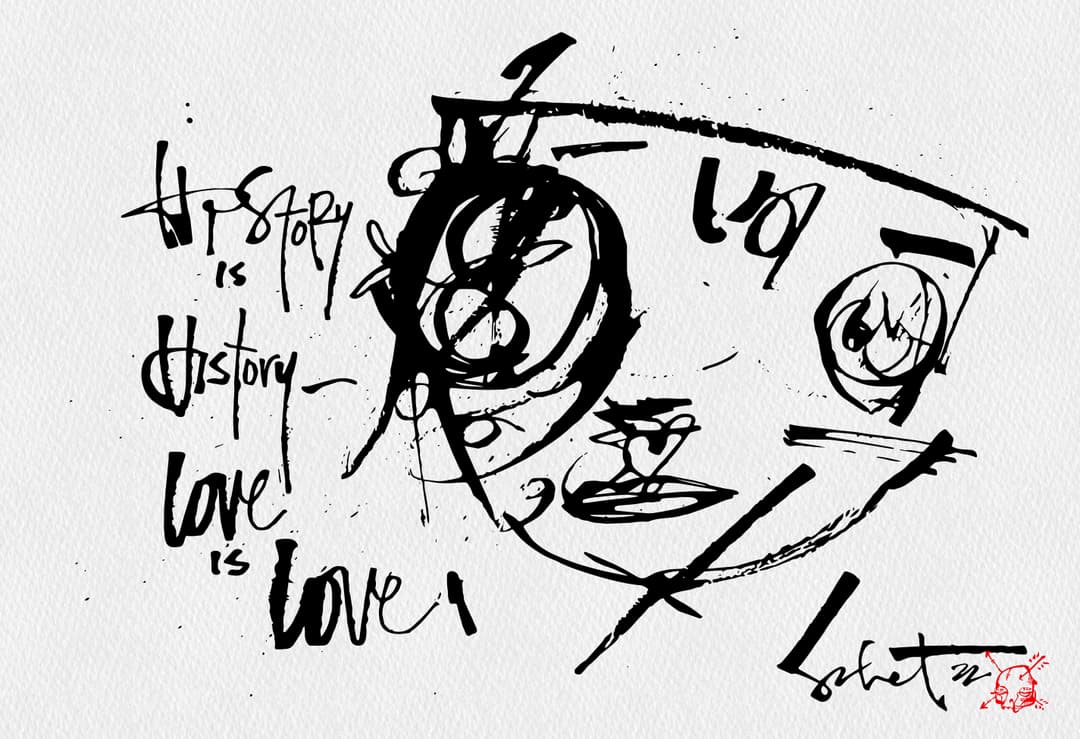 HiStoRy
is
History-
Love
is Love
22